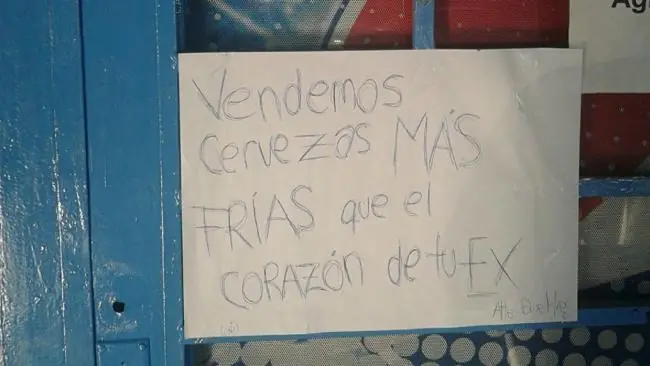 Ag
Vendemos
cervezas MÁS
FRÍAS que el
CORAZÓN de tu EX